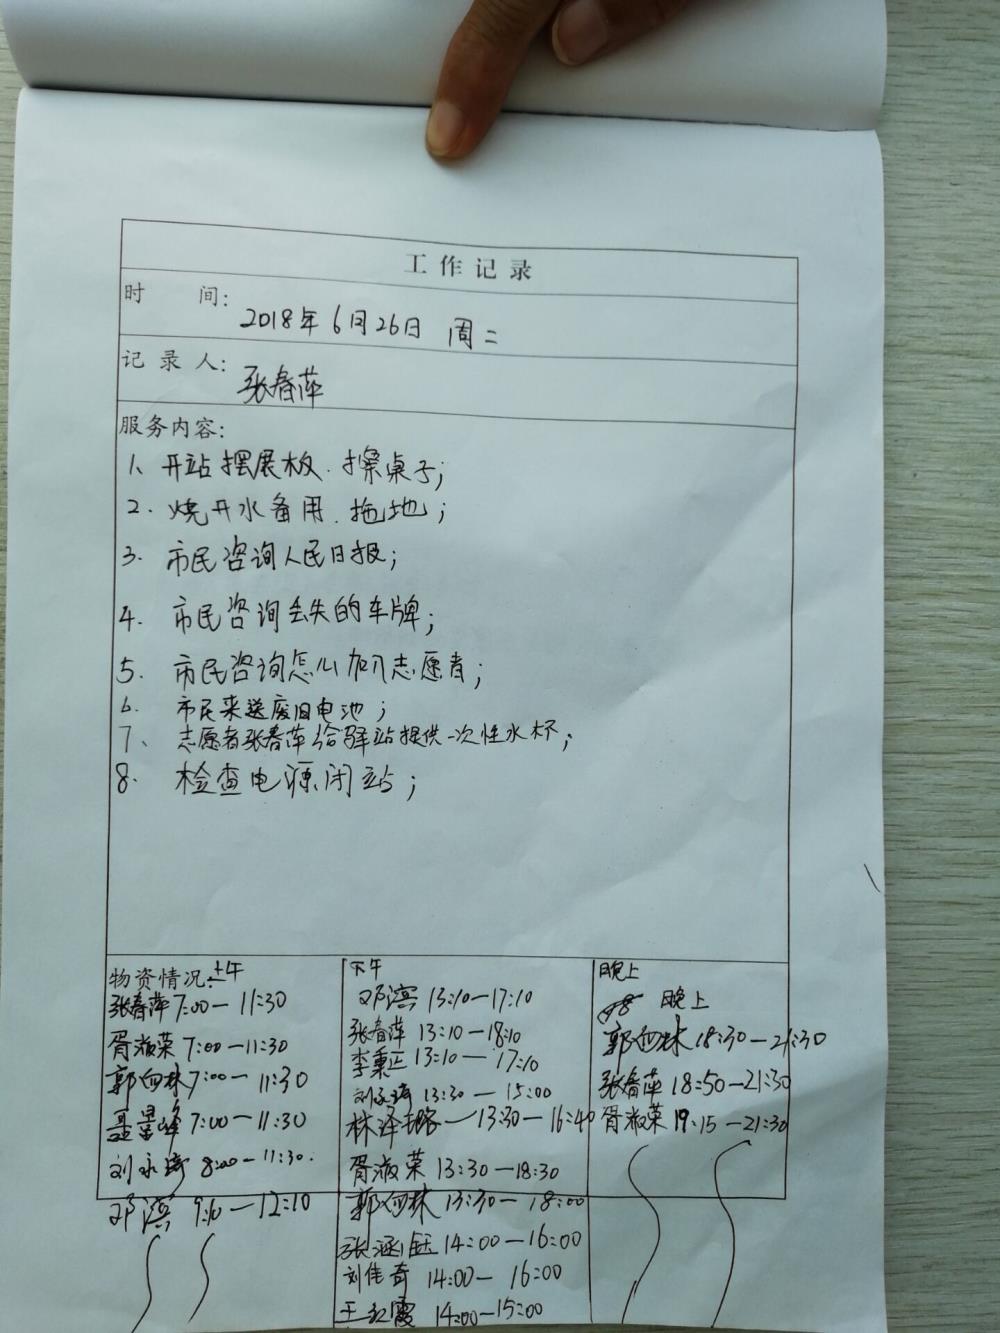 工作记录
时 间: 2018年6月26日 周二
记录人: 张春萍
服务内容:
1、开站摆展板、擦桌子;
2. 烧开水备用、拖地;
3. 市民咨询人民日报;
4. 市民咨询丢失的车牌;
5. 市民咨询怎么加入志愿者;
6. 市民来送废旧电池;
7、志愿者张春萍给驿站提供一次性水杯;
8. 检查电源闭站;
物资情况: 上午
张春萍 7:00—11:30
胥淑荣 7:00—11:30
郭向林 7:00—11:30
7:00—11:30
刘永琦 8:00—11:30.
邓滨 9:10—12:10
下午
邓滨 13:10—17:10
张春萍 13:10—18:10
李秉正 13:10—17:10
刘永琦 13:30—15:00
林泽 —13:30—16:40
胥淑荣 13:30—18:30
郭向林 13:30—18:00
张涵钰 14:00—16:00
刘佳奇 14:00—16:00
王红霞 14:00—15:00
晚上
晚上
郭向林 18:30—21:30
张春萍 18:50—21:30
胥淑荣 19:15—21:30